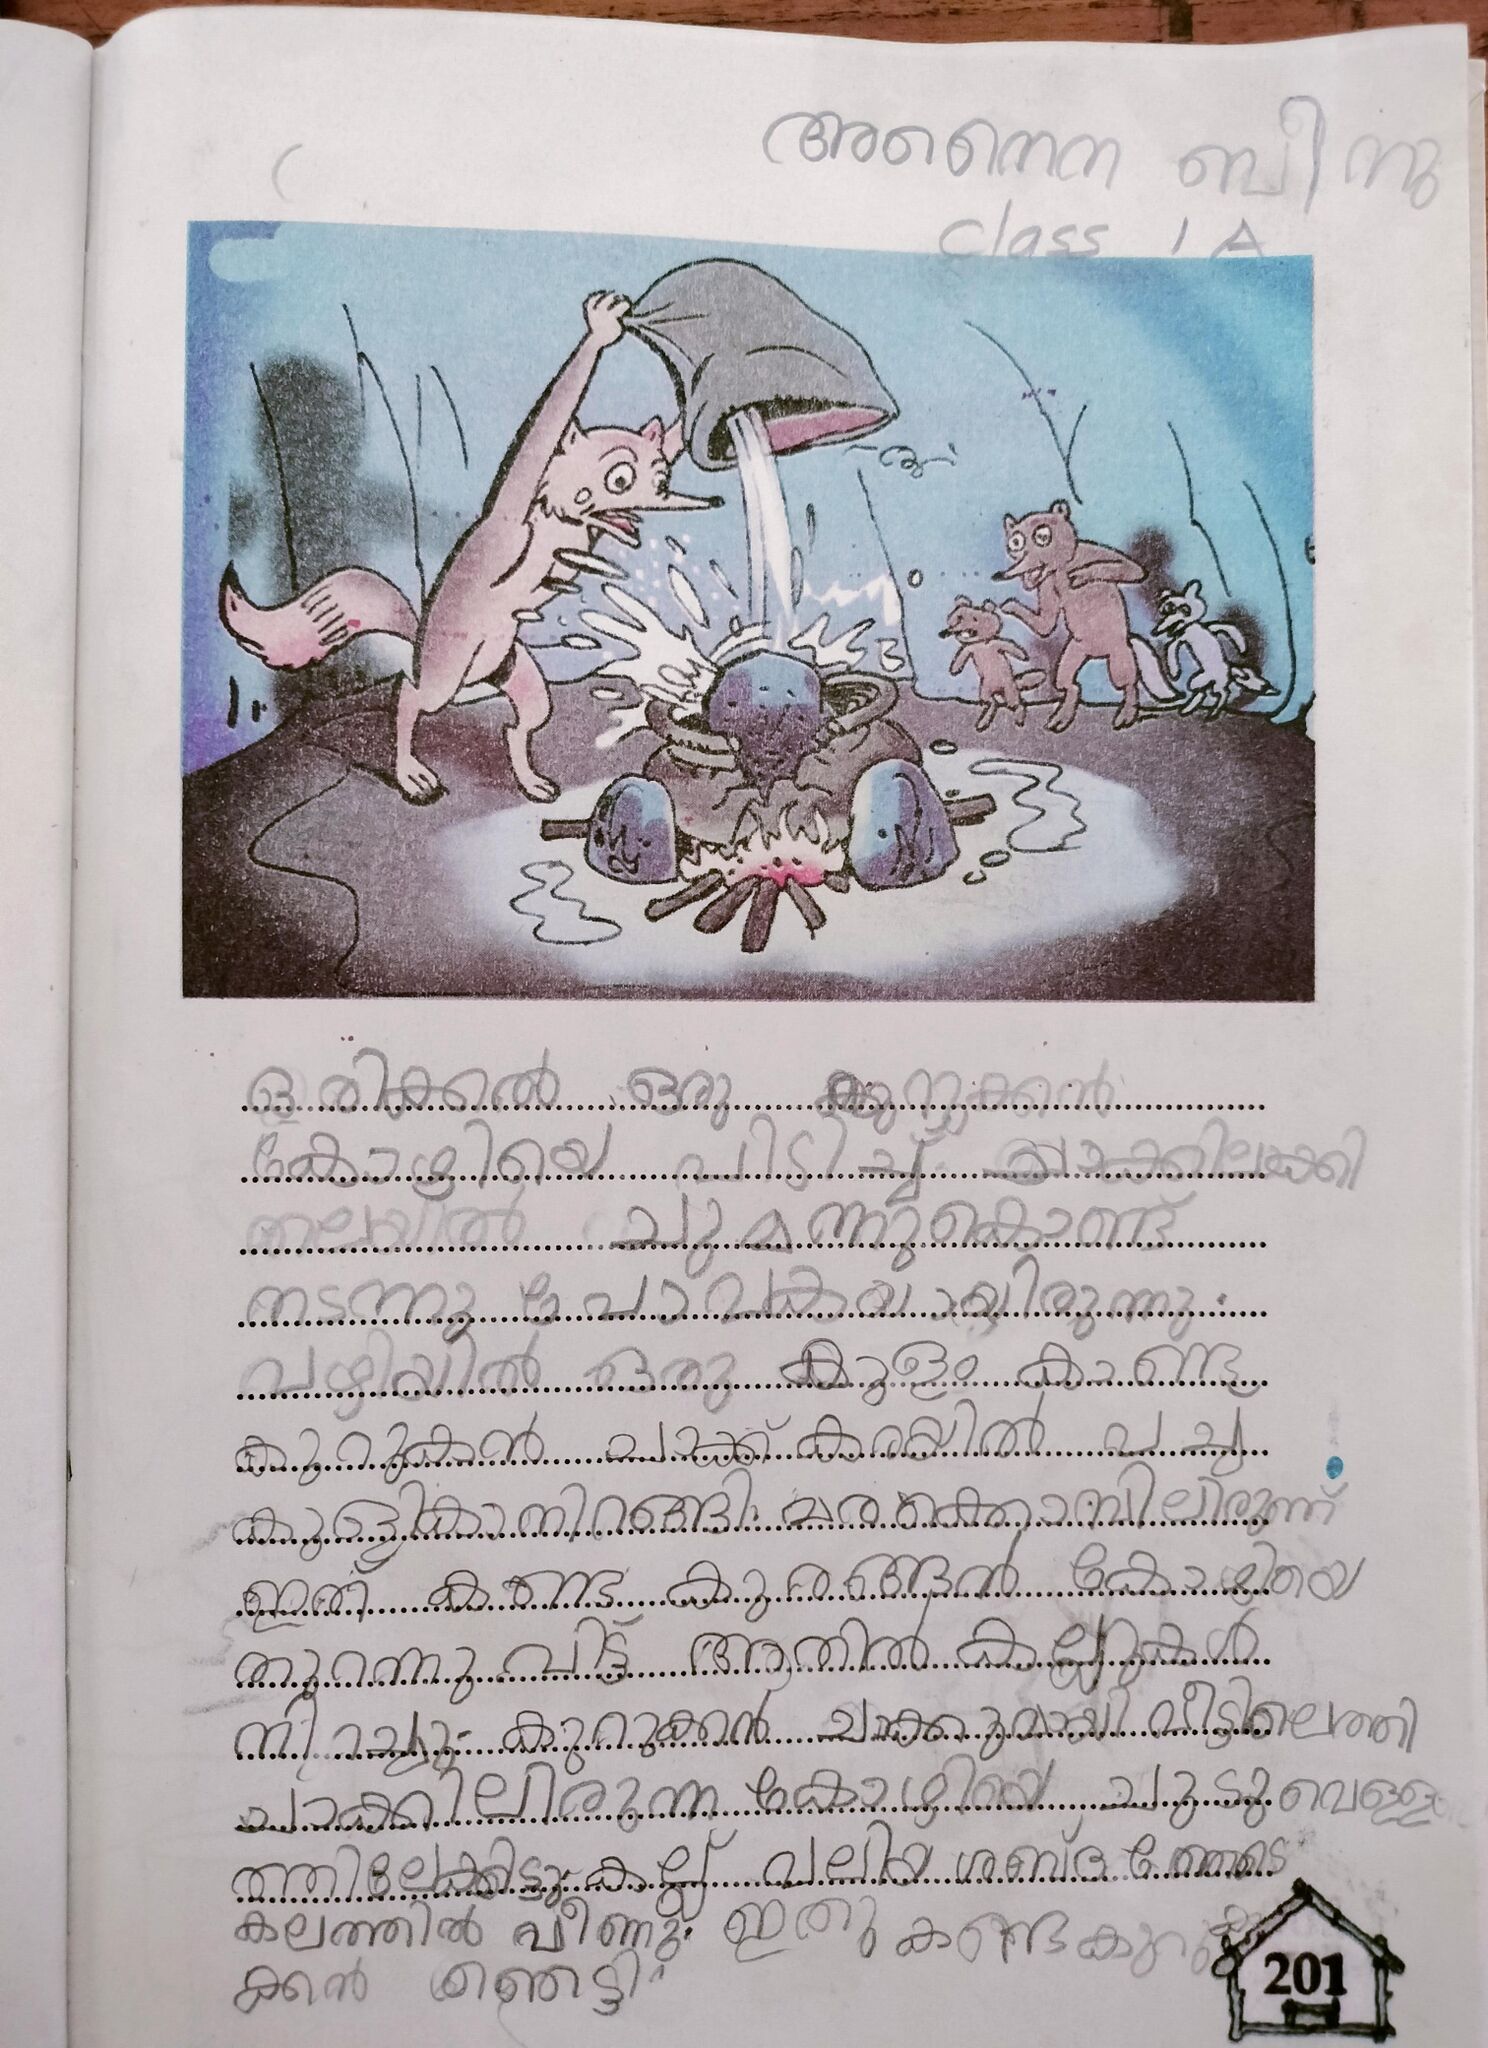 അനെന ബിനു
class 1 A
ഒരിക്കൽ ഒരു കുറുക്കൻ
കോഴിയെ പിടിച്ച് ചാക്കിലാക്കി
തലയിൽ ചുമന്നുകൊണ്ട്
നടന്നു പോവകയായിരുന്നു.
വഴിയിൽ ഒരു കുളം കാണ്ട
കുറുകൻ ചാക്ക് കരയിൽ വച്ചു
കുളിക്കാനിറങ്ങി. മരക്കൊമ്പിലിരുന്ന്
ഇത് കണ്ട കുരങ്ങൻ കോഴിയെ
തുറന്നു വിട്ട് അതിൽ കല്ലുകൾ
നിറച്ചു. കുറുക്കൻ ചാക്കുമായി വീട്ടിലെത്തി
ചാക്കിലിരുന്ന കോഴിയെ ചുടുവെള്ള
ത്തിലേക്കിട്ടു. കല്ല് വലിയ ശബ്ദ ത്തോടെ
കലത്തിൽ വീണു. ഇതു കണ്ട കുറു
ക്കൻ ഞെട്ടി.
201